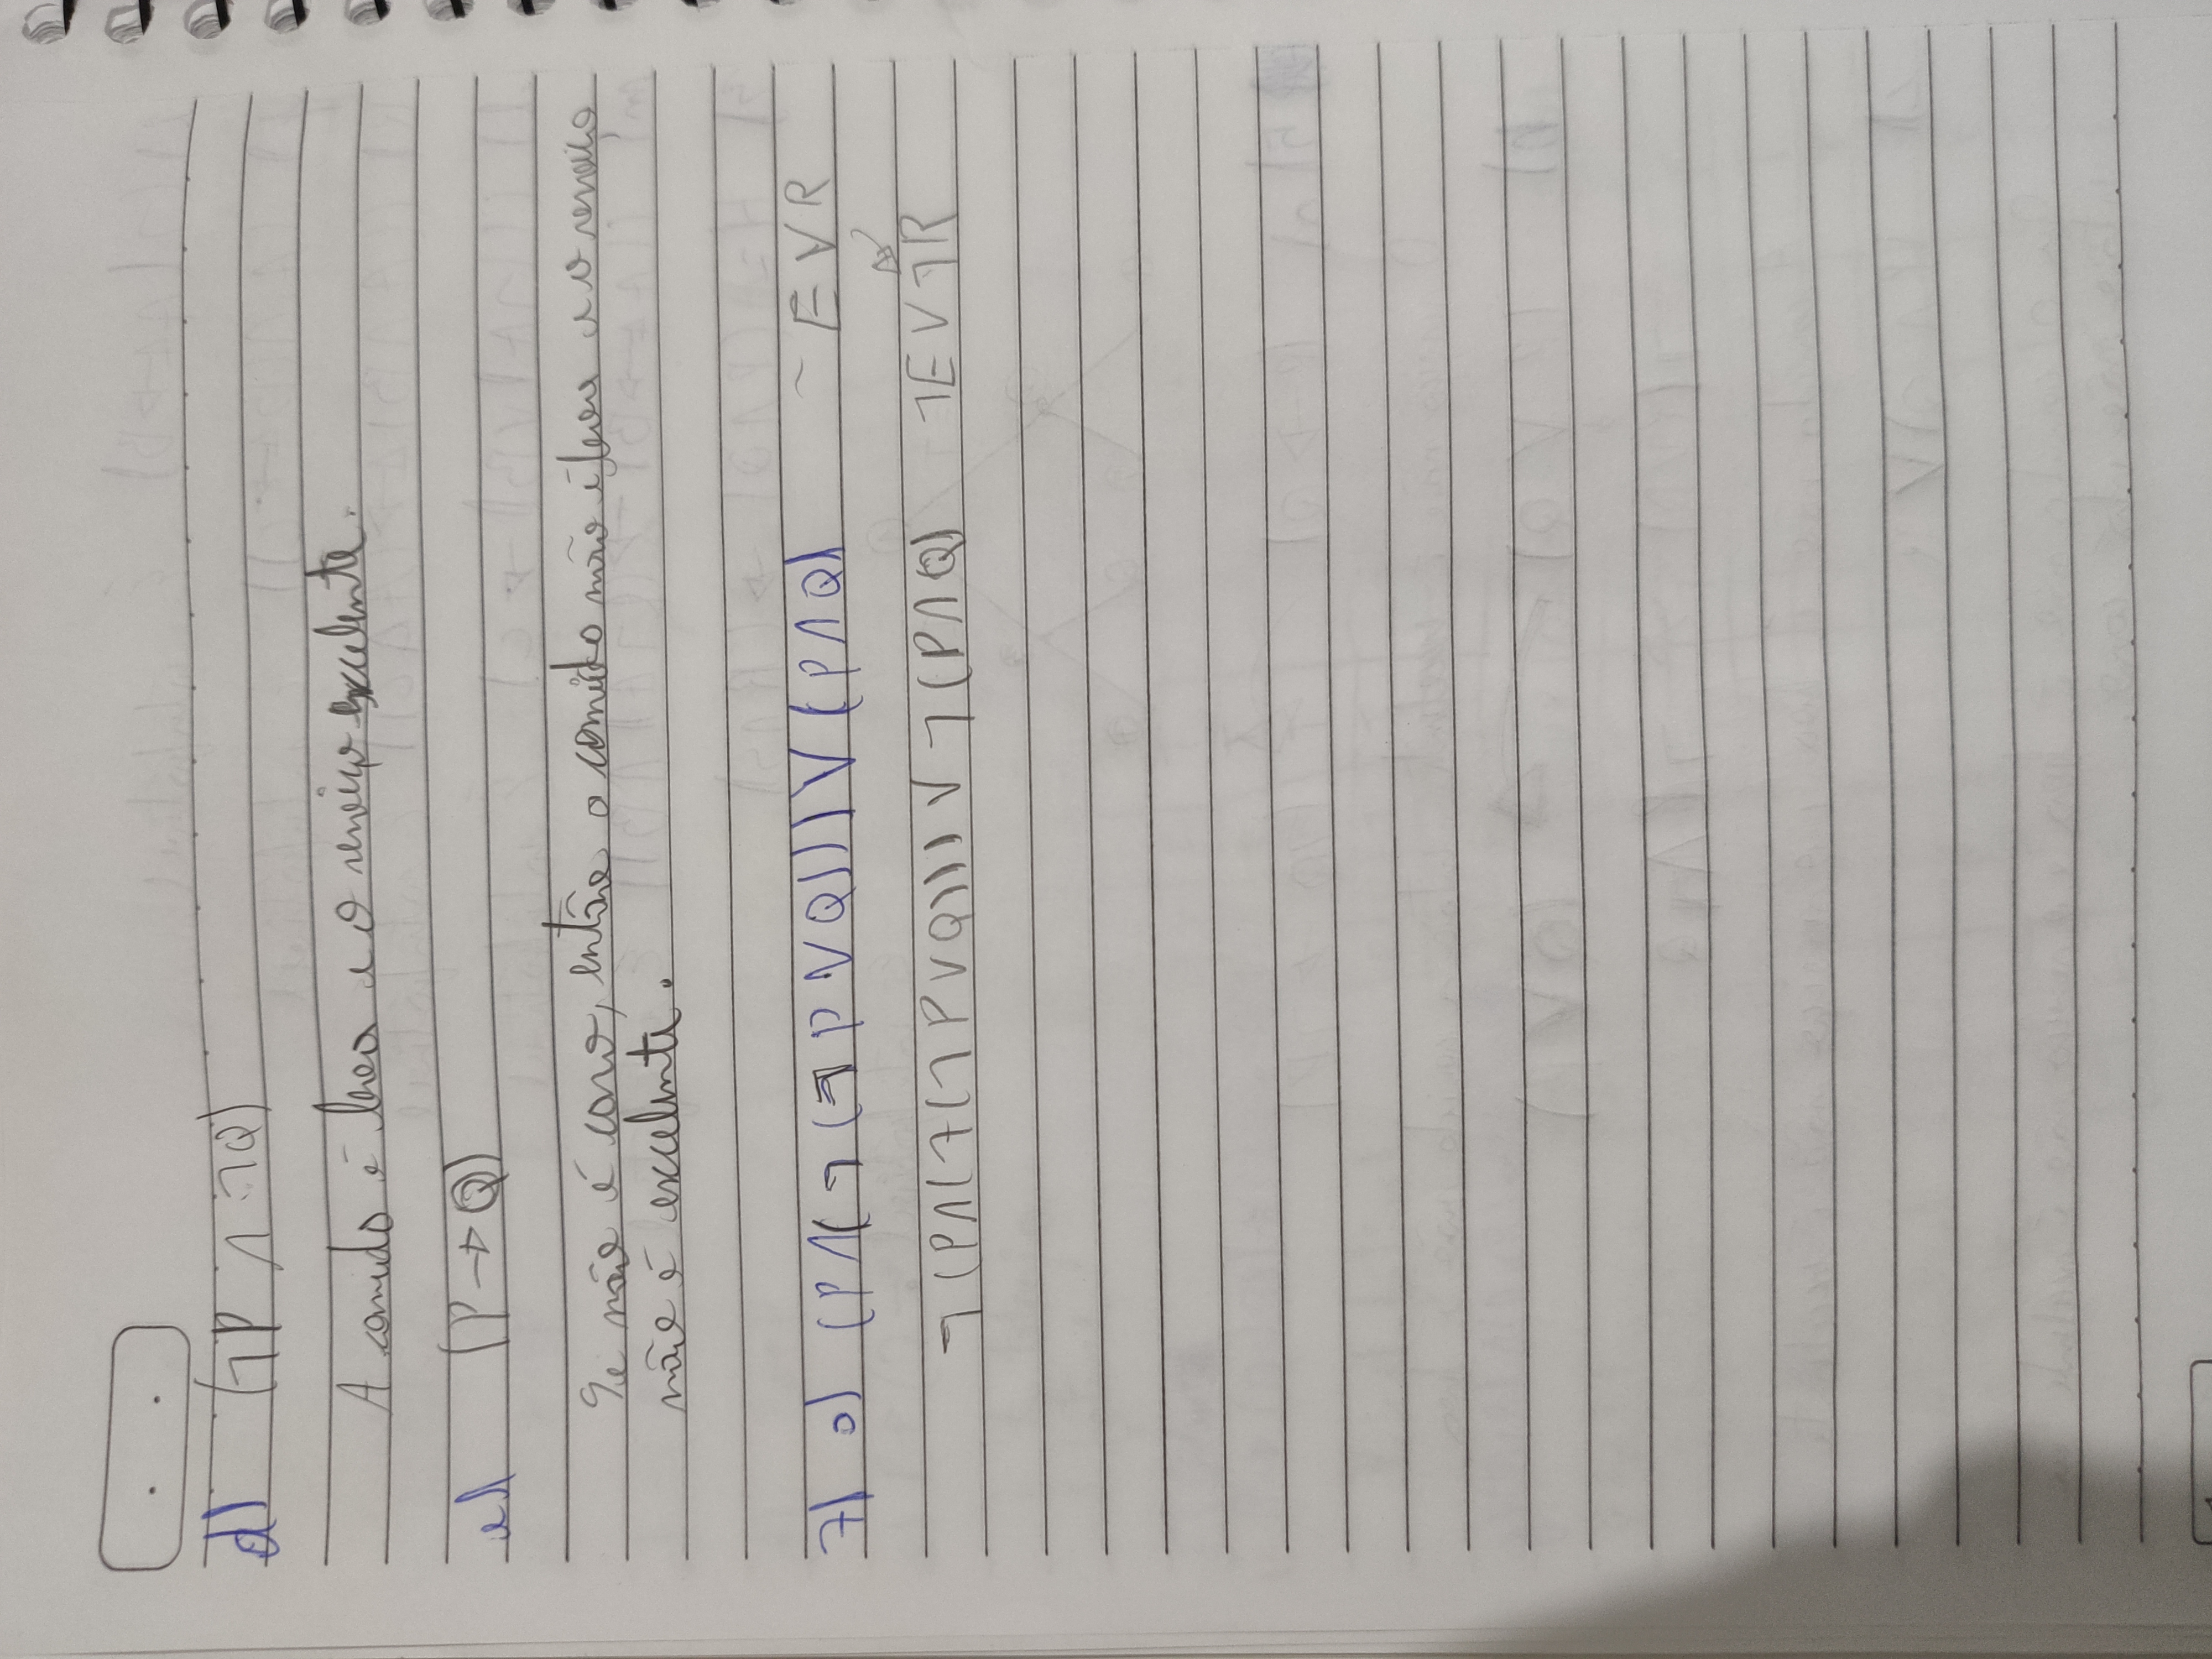 d) (¬P ∧ ¬Q)
A comida é boa e o serviço excelente.
e) (P → Q)
Se não é caro, então a comida não é boa e o serviço
não é excelente.
7) a) (P∧(¬(¬P∨Q)))∨(P∧Q) ~ E∨R
¬(P∧(¬(¬P∨Q)))∨¬(P∧Q) ¬E∨¬R